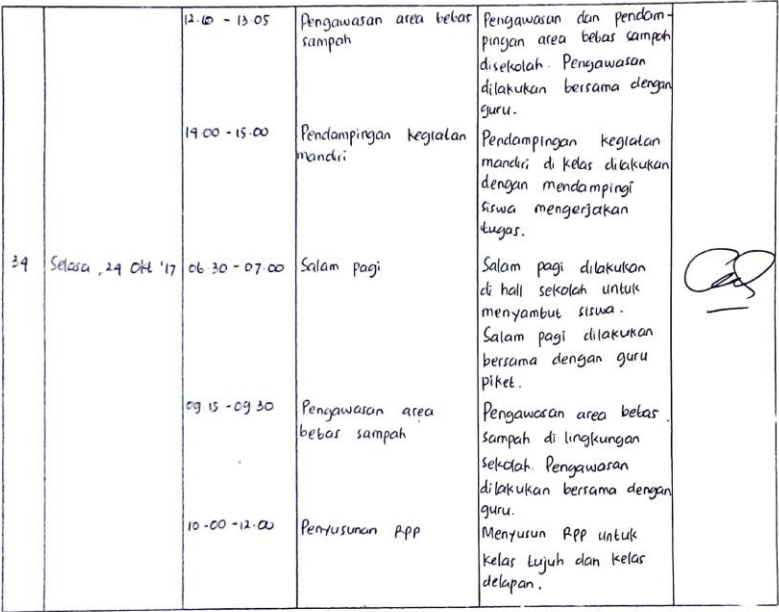 12.10 - 13.05 Pengawasan area bebas Pengawasan dan pendam-
sampah pingan area bebas sampah
disekolah. Pengawasan
dilakukan bersama dengan
guru.
14.00 - 15.00 Pendampingan kegiatan Pendampingan kegiatan
mandiri mandiri di kelas dilakukan
dengan mendampingi
siswa mengerjakan
tugas.
34 Selasa, 24 Okt '17 06.30 - 07.00 Salam pagi Salam pagi dilakukan
di hall sekolah untuk
menyambut siswa.
Salam pagi dilakukan
bersama dengan guru
piket.
09 15 - 09 30 Pengawasan area Pengawasan area bebas
bebas sampah sampah di lingkungan
sekolah. Pengawasan
dilakukan bersama dengan
guru.
10.00 - 12.00 Penyusunan RPP Menyusun RPP untuk
kelas tujuh dan kelas
delapan.